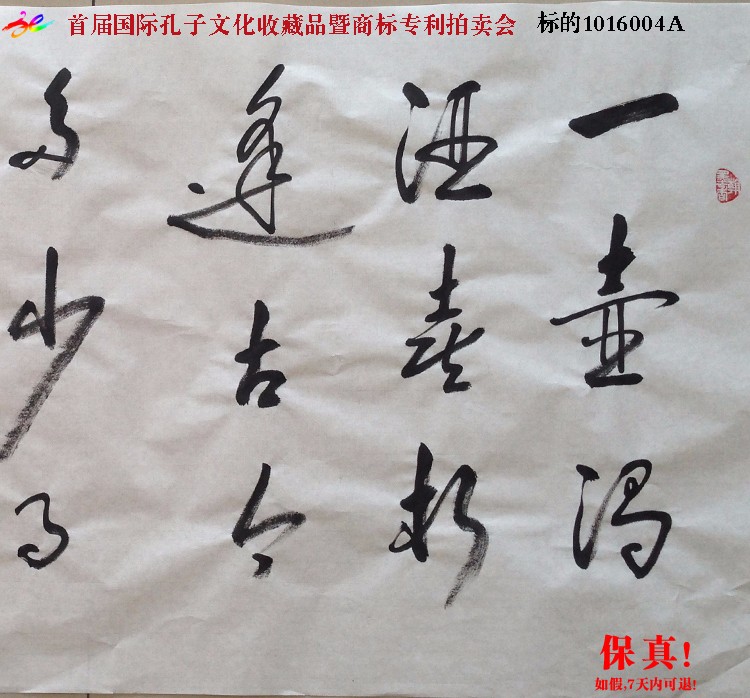 首届国际孔子文化收藏品暨商标专利拍卖会 标的1016004A
一壺濁
酒喜相
逢古今
多少事
保真!
如假,7天内可退!